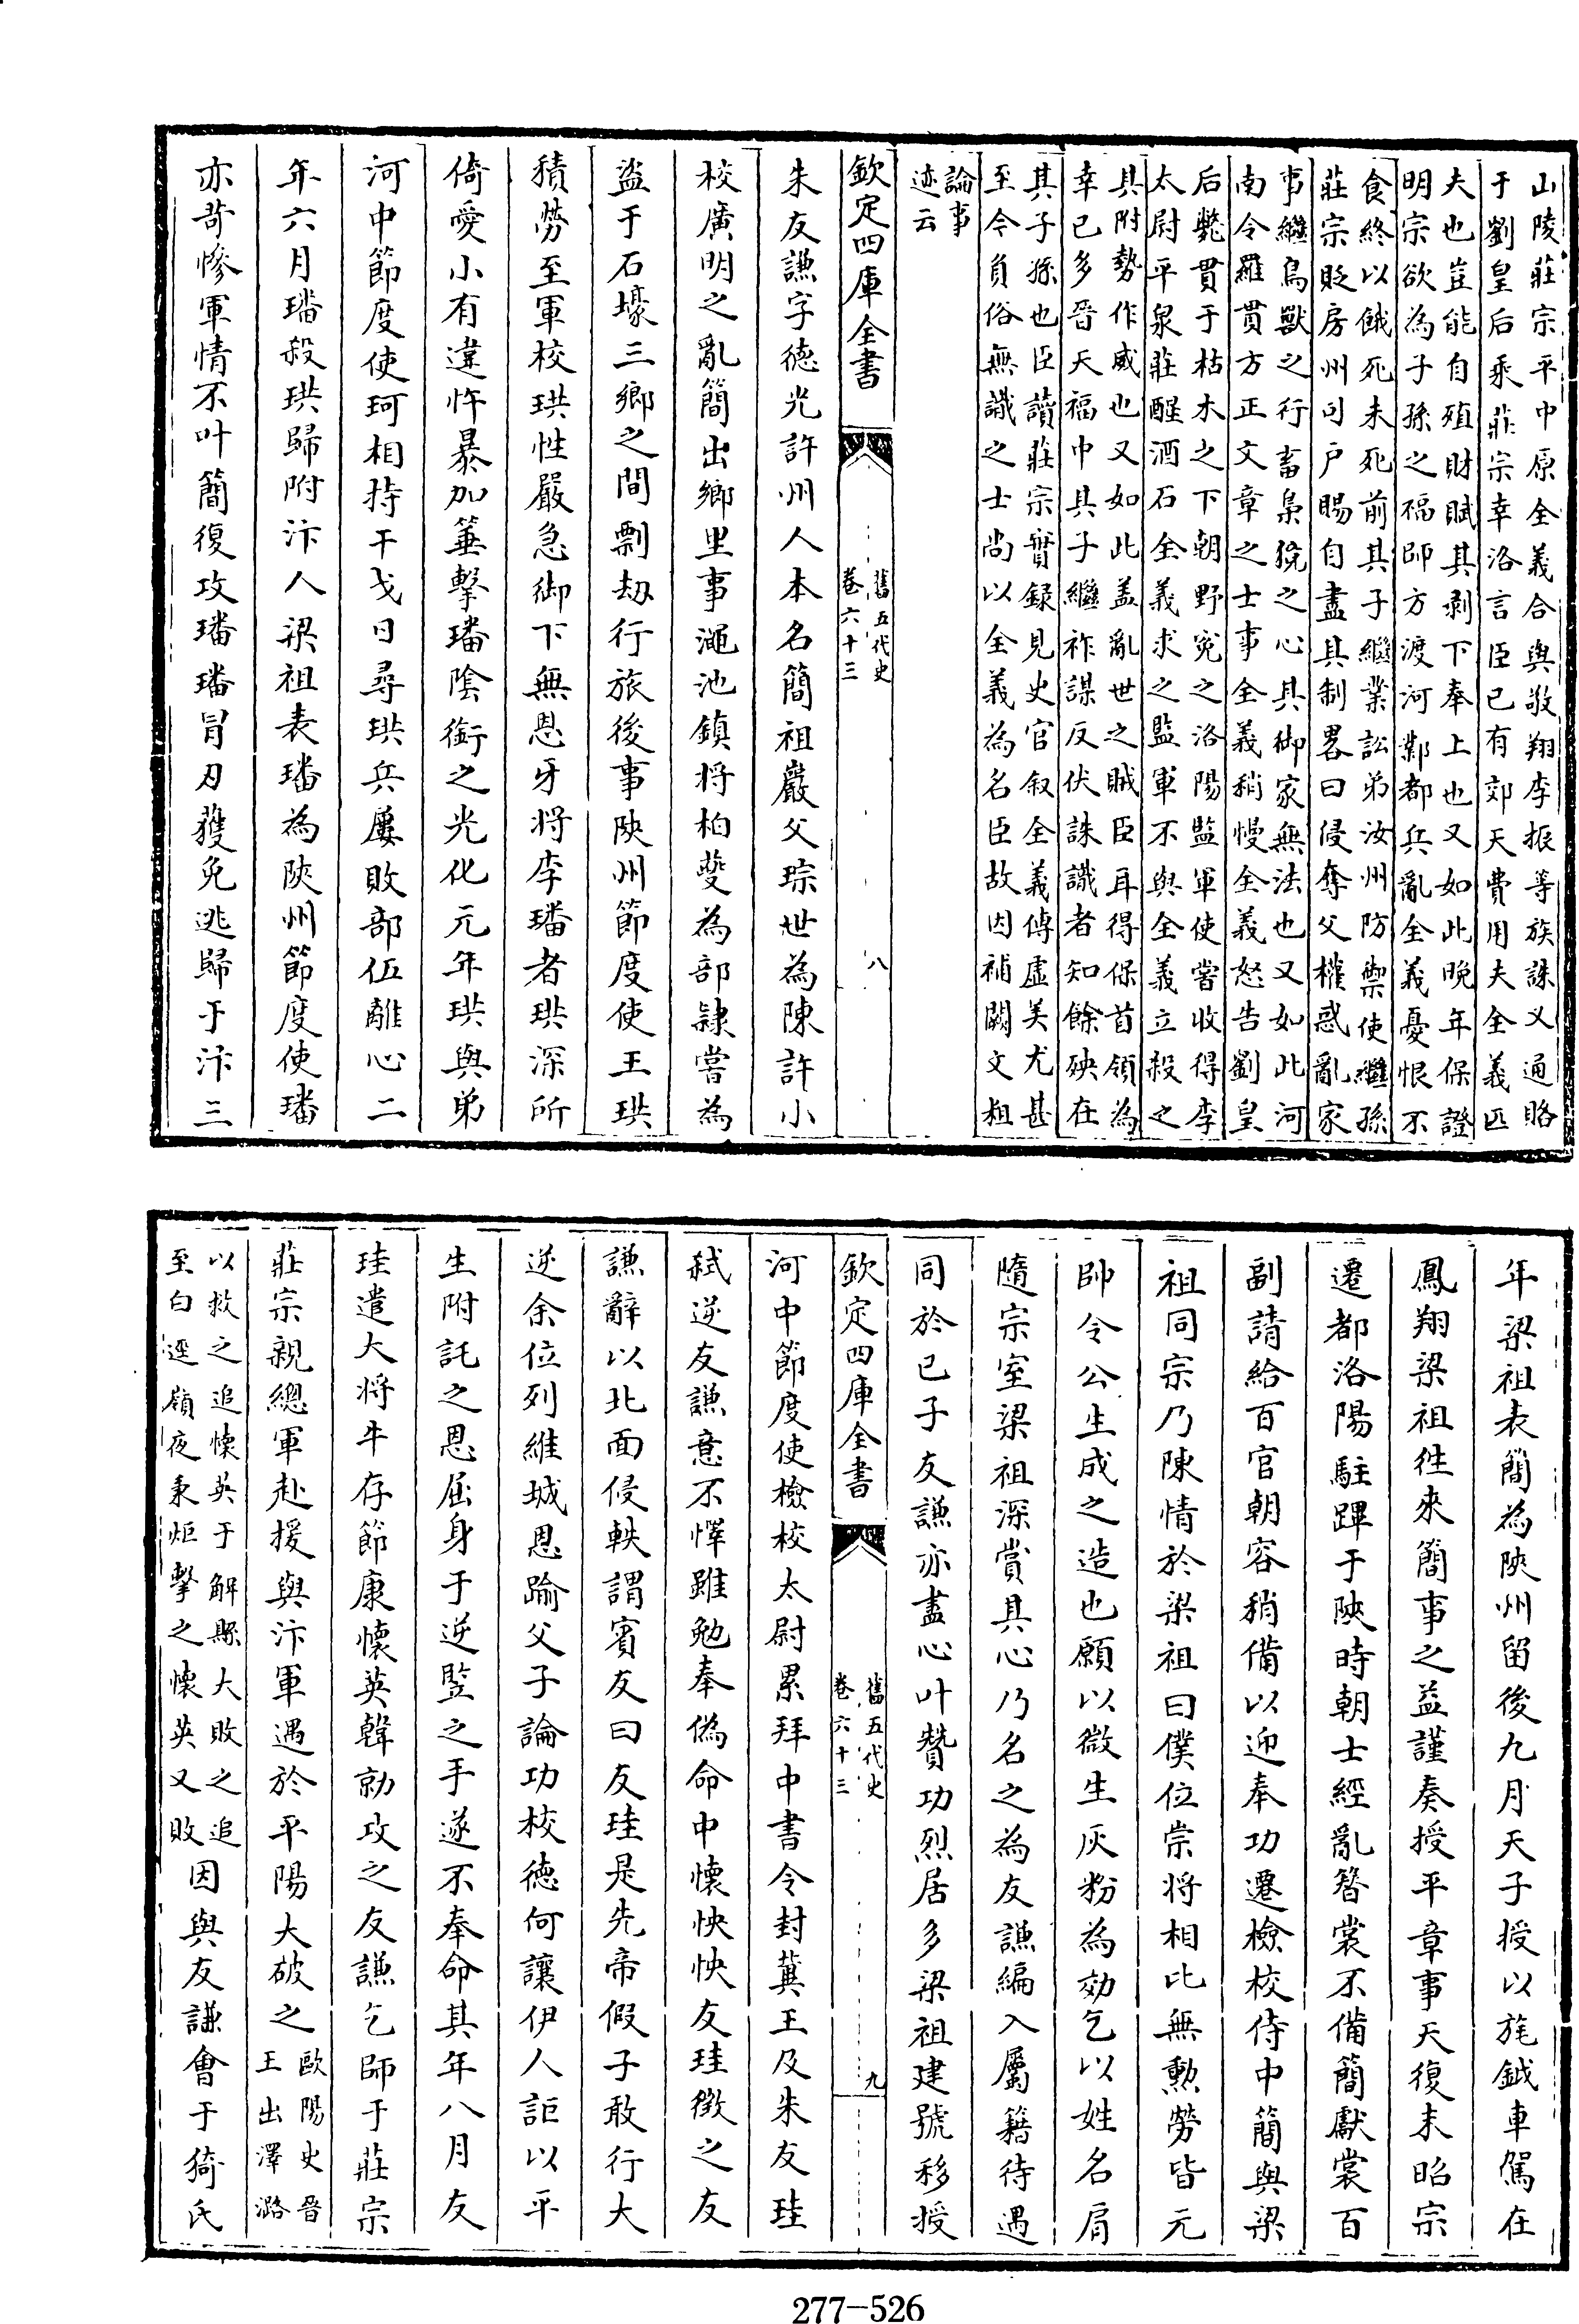 山陵莊宗平中原全義合與敬翔李振等族誅又通賂
于劉皇后乘莊宗幸洛言臣已有郊天費用夫全義匹
夫也豈能自殖財賦其剥下奉上也又如此晚年保證
明宗欲為子孫之福師方渡河鄴都兵亂全義憂恨不
食終以餓死未死前其子繼業訟弟汝州防禦使繼孫
莊宗貶房州司户賜自盡其制畧曰侵奪父權惑亂家
事繼鳥獸之行畜梟獍之心其御家無法也又如此河
南令羅貫方正文章之士事全義稍慢全義怒告劉皇
后斃貫于枯木之下朝野寃之洛陽監軍使嘗收得李
太尉平泉莊醒酒石全義求之監軍不與全義立殺之
其附勢作威也又如此盖亂世之賊臣耳得保首領為
幸已多晉天福中其子繼祚謀反伏誅識者知餘殃在
其子孫也臣讀莊宗實録見史官叙全義傳虛美尤甚
至今負俗無識之士尚以全義為名臣故因補闕文粗
論事
迹云
欽定四庫全書
舊五代史
卷六十三
八
朱友謙字德光許州人本名簡祖巖父琮世為陳許小
校廣明之亂簡出鄉里事澠池鎮將柏夔為部隷嘗為
盜于石壕三鄉之間剽刼行旅後事陜州節度使王珙
積勞至軍校珙性嚴急御下無恩牙將李璠者珙深所
倚愛小有違忤暴加箠擊璠陰銜之光化元年珙與弟
河中節度使珂相持干戈日尋珙兵屢敗部伍離心二
年六月璠殺珙歸附汴人梁祖表璠為陜州節度使璠
亦苛慘軍情不叶簡復攻璠璠冐刃獲免逃歸于汴三
年梁祖表簡為陜州留後九月天子授以旄鉞車駕在
鳳翔梁祖徃來簡事之益謹奏授平章事天復末昭宗
遷都洛陽駐蹕于陜時朝士經亂簪裳不備簡獻裳百
副請給百官朝容稍備以迎奉功遷檢校侍中簡與梁
祖同宗乃陳情於梁祖曰僕位崇將相比無勲勞皆元
帥令公生成之造也願以微生灰粉為効乞以姓名肩
隨宗室梁祖深賞其心乃名之為友謙編入屬籍待遇
同於已子友謙亦盡心叶贊功烈居多梁祖建號移授
欽定四庫全書
舊五代史
卷六十三
九
河中節度使檢校太尉累拜中書令封冀王及朱友珪
弑逆友謙意不懌雖勉奉偽命中懷怏怏友珪徵之友
謙辭以北面侵軼謂賓友曰友珪是先帝假子敢行大
逆余位列維城恩踰父子論功校德何讓伊人詎以平
生附託之恩屈身于逆竪之手遂不奉命其年八月友
珪遣大將牛存節康懷英韓勍攻之友謙乞師于莊宗
莊宗親總軍赴援與汴軍遇於平陽大破之歐陽史晉
王出澤潞
以救之追懷英于解縣大敗之追
至白逕嶺夜秉炬擊之懷英又敗因與友謙會于猗氏
277-526